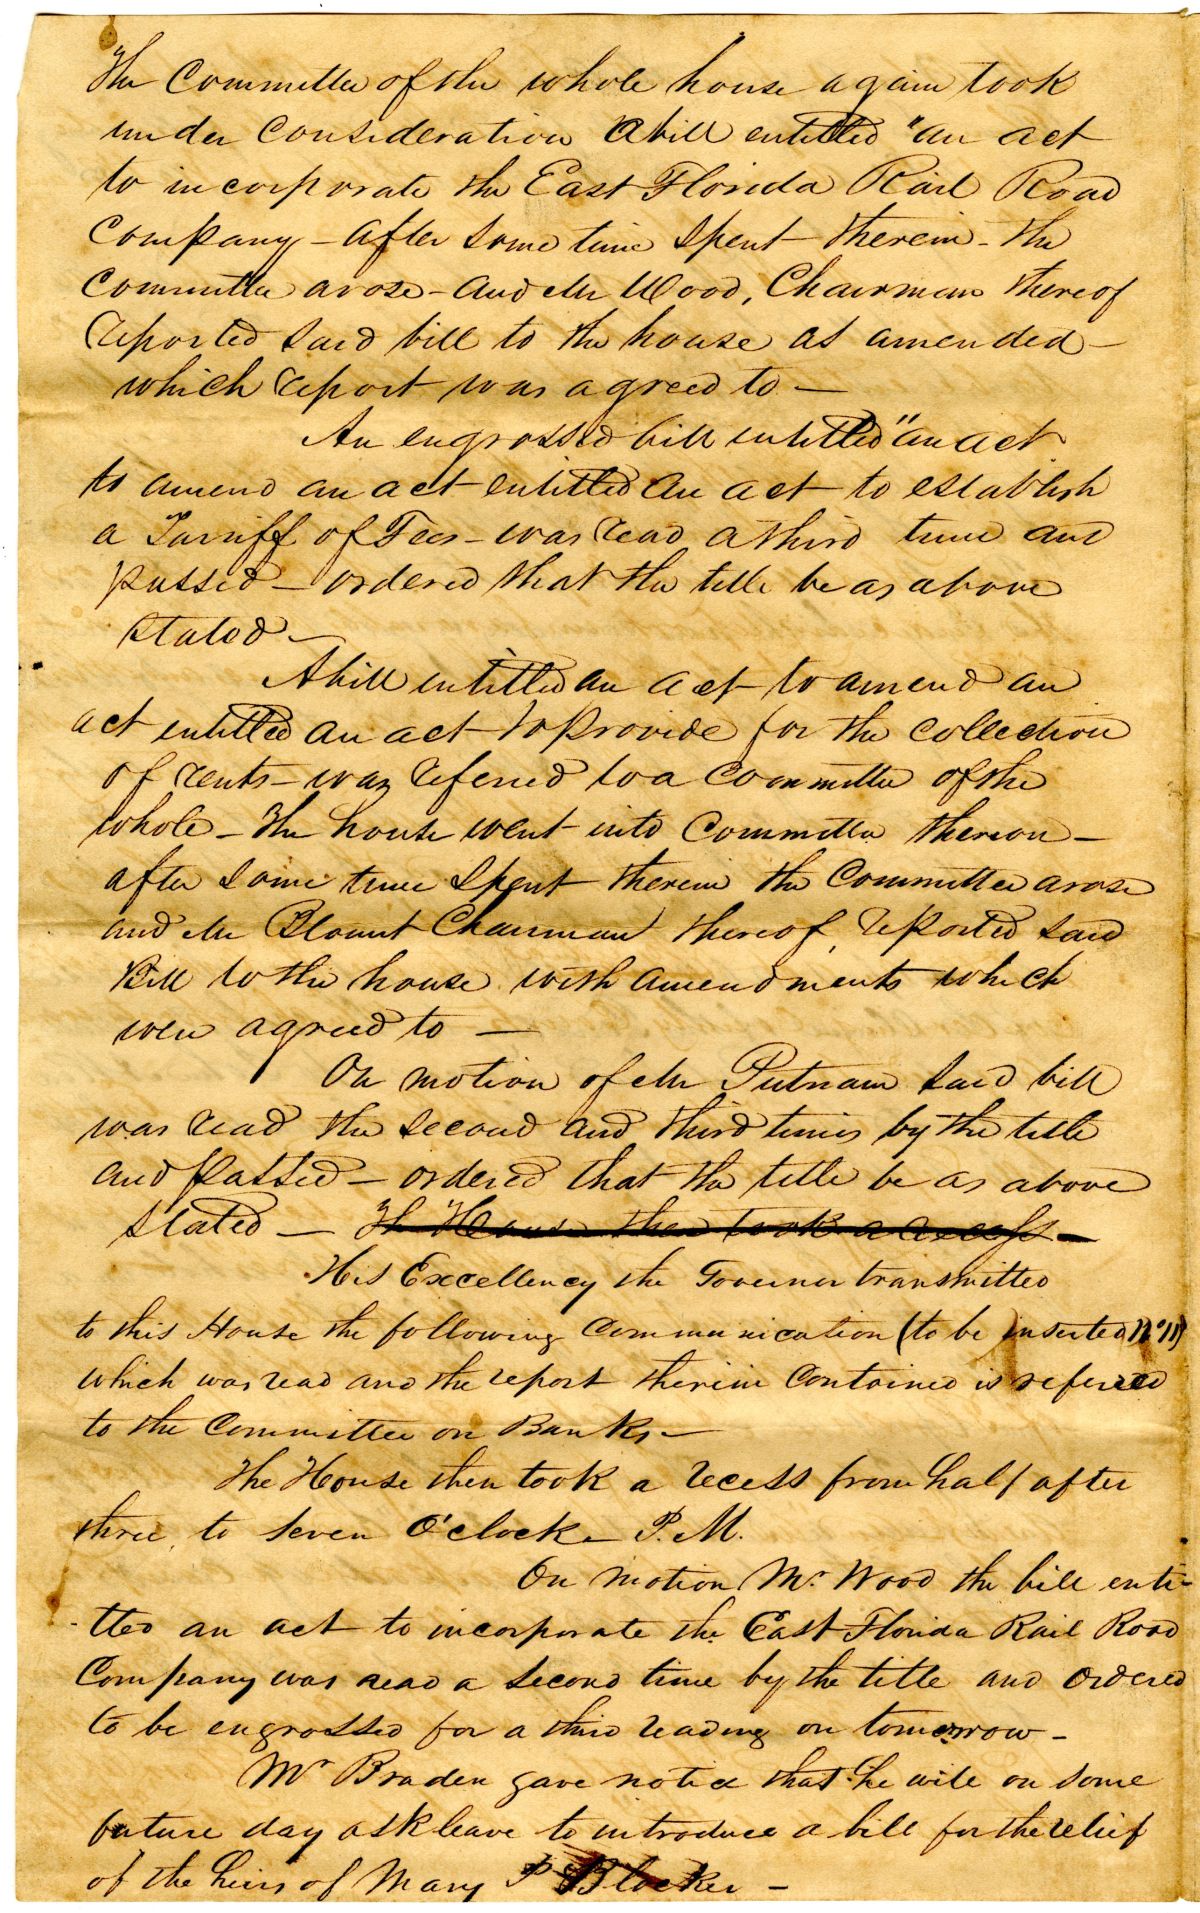 The Committee of the whole house again took
under consideration A bill entitled "an act
to incorporate the East Florida Rail Road
Company - after some time spent therein - the
committee arose - and Mr Wood, Chairman thereof
reported said bill to the house as amended -
which report was agreed to -
An engrossed bill entitled "an act
to amend an act entitled an act to establish
a Tarriff of Fees - was read a third time and
passed - ordered that the title be as above
stated -
A bill entitled an act to amend an
act entitled an act to provide for the collection
of rents - was referred to a committee of the
whole - The house went into Committee thereon -
after some time spent therein the Committee arose
and Mr Blount Chairman thereof, reported said
Bill to the house with amendments which
were agreed to -
On motion of Mr Putnam said bill
was read the second and third times by the title
and passed - ordered that the title be as above
stated - The House then took a recess -
His Excellency the Governor transmitted
to this House the following Communication (to be inserted No 11)
which was read and the report therein contained is referred
to the Committee on Banks -
The House then took a recess from half after
three, to seven O'clock - P.M.
On motion Mr. Wood the bill enti-
-tled an act to incorporate the East Florida Rail Road
Company was read a second time by the title and ordered
to be engrossed for a third reading on tomorrow -
Mr Braden gave notice that he will on some
future day ask leave to introduce a bill for the relief
of the heirs of Mary P Blocker -